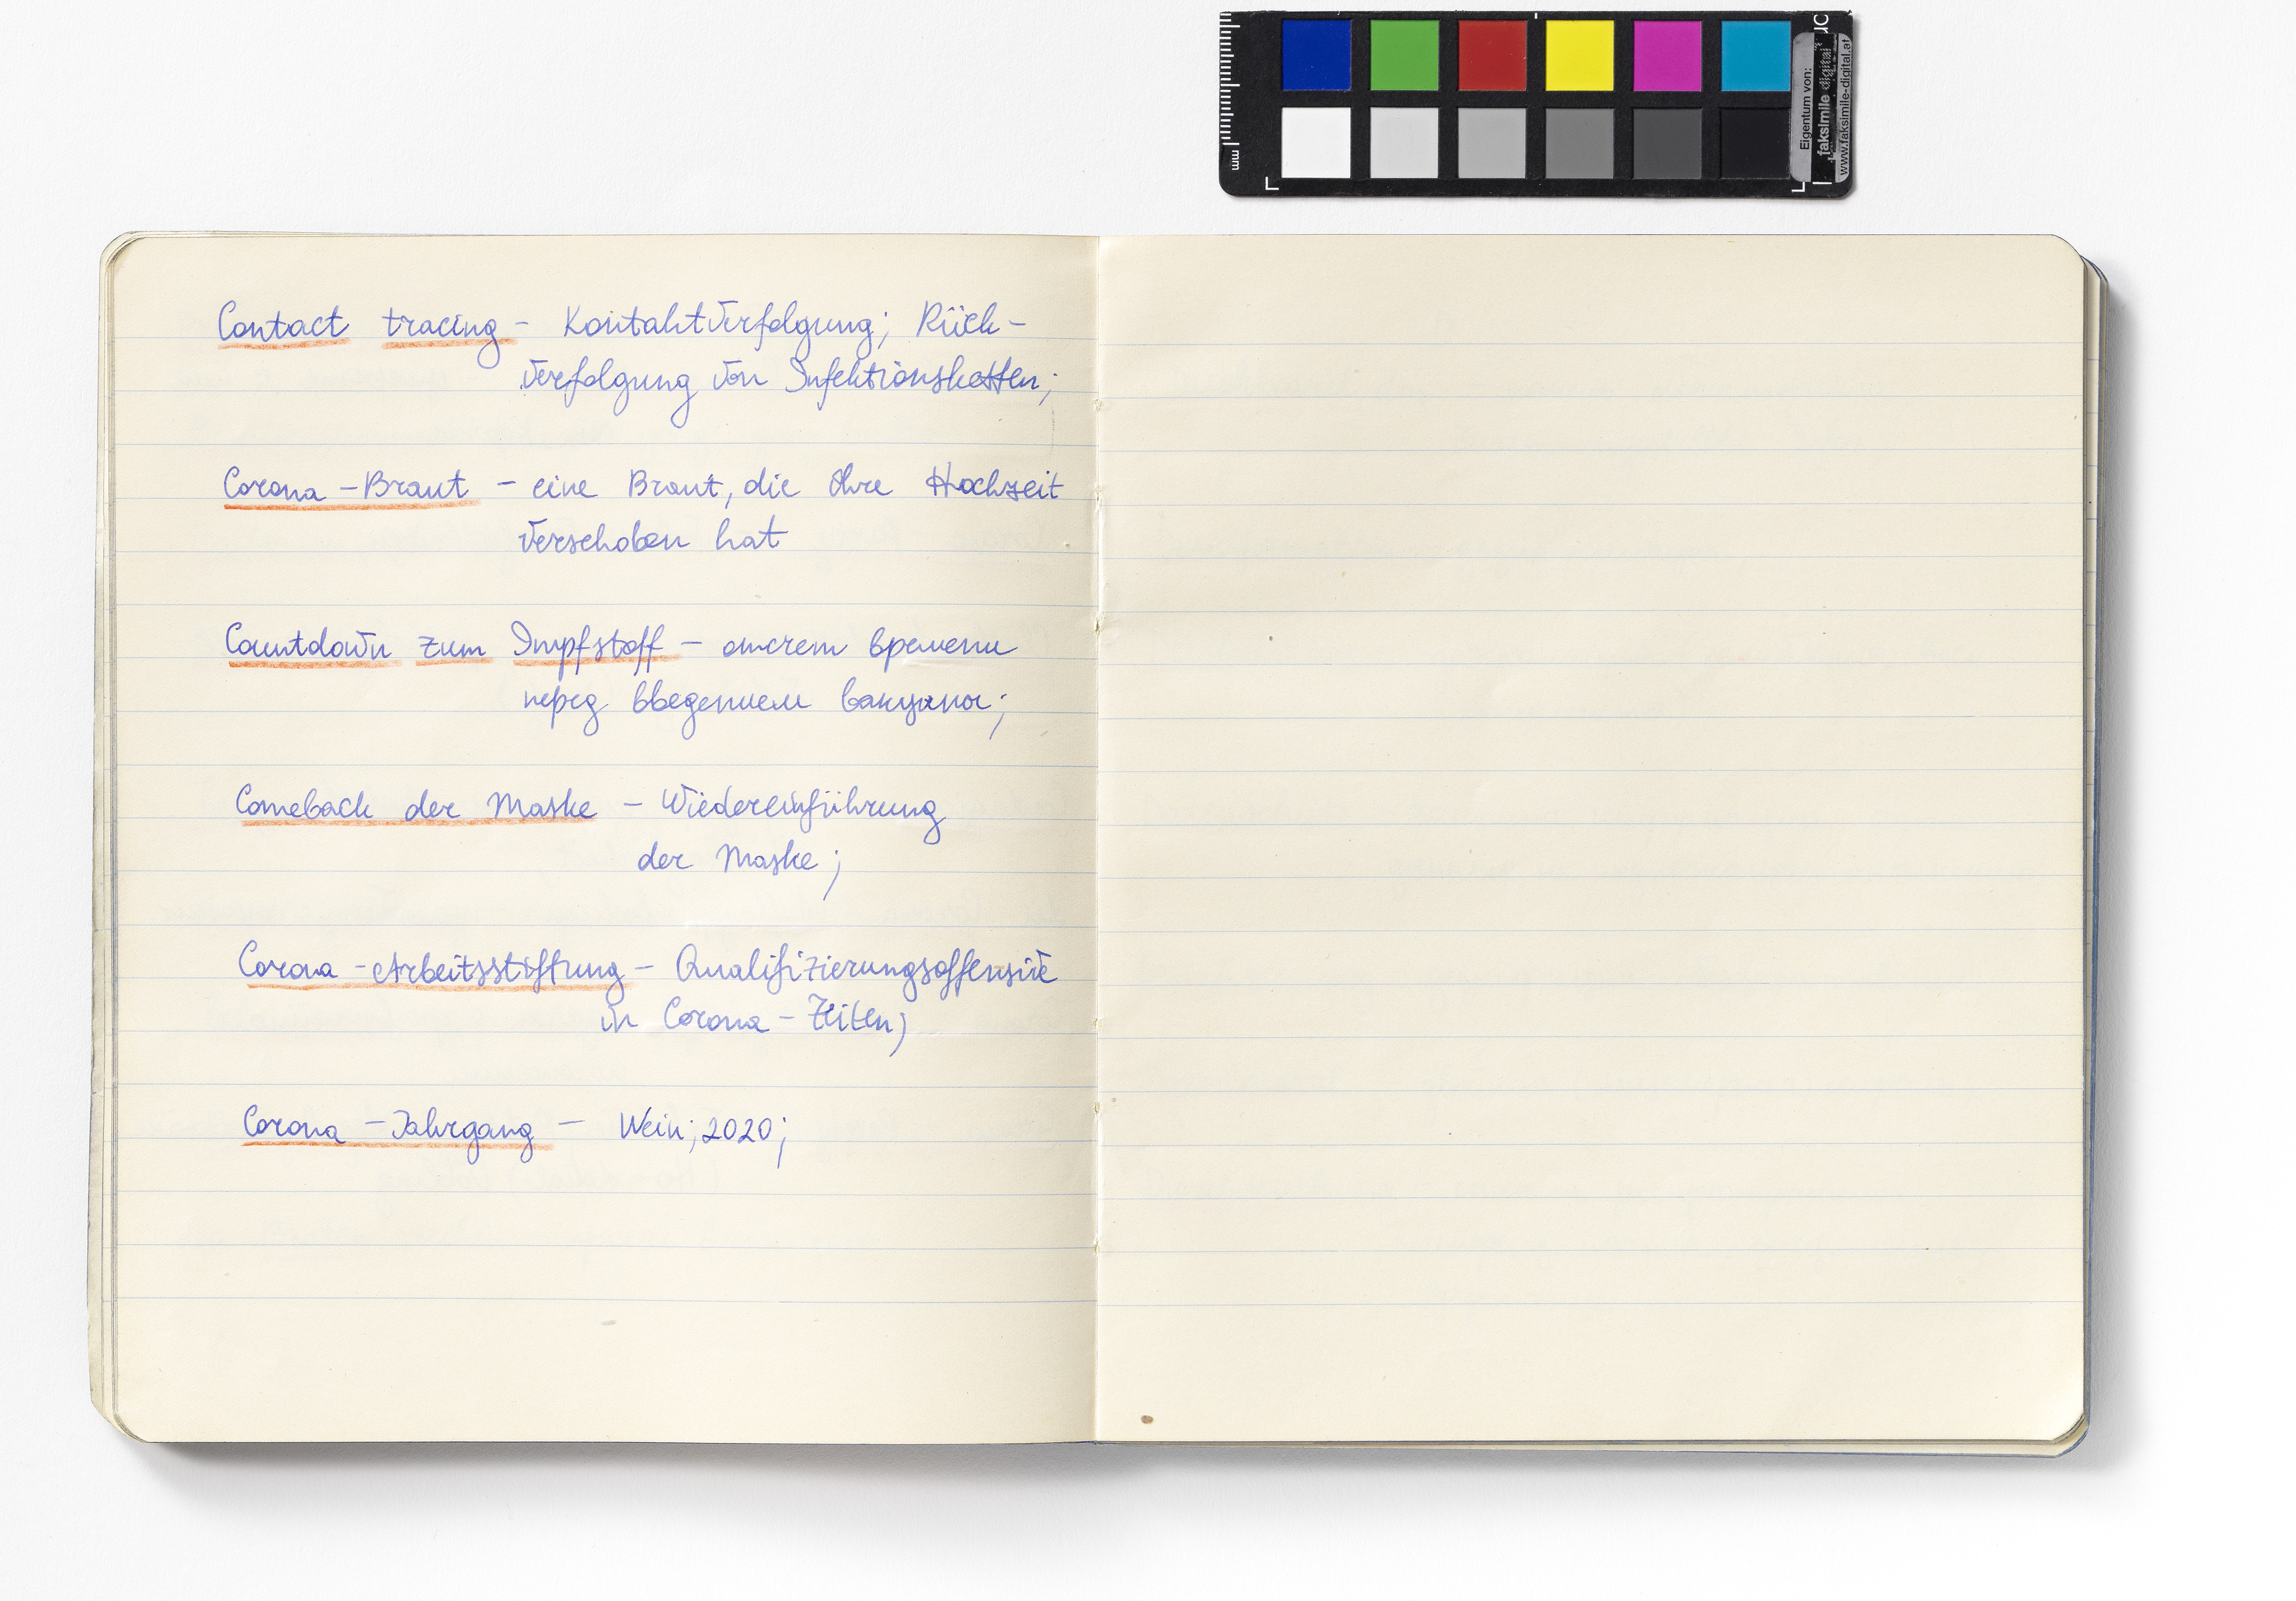 Contact tracing - Kontaktverfolgung; Rück-
verfolgung von Infektionsketten;
Corona - Braut - eine Braut, die Ihre Hochzeit
verschoben hat
Countdown zum Impfstoff - отсчет времени
перед введением вакцины;
Comeback der Maske - Wiedereinführung
der Maske;
Corona - Arbeitsstiftung - Qualifizierungsoffensive
in Corona - Zeiten;
Corona - Jahrgang - Wein; 2020;
mm
Eigentum von:
faksimile digital
www.faksimile-digital.at